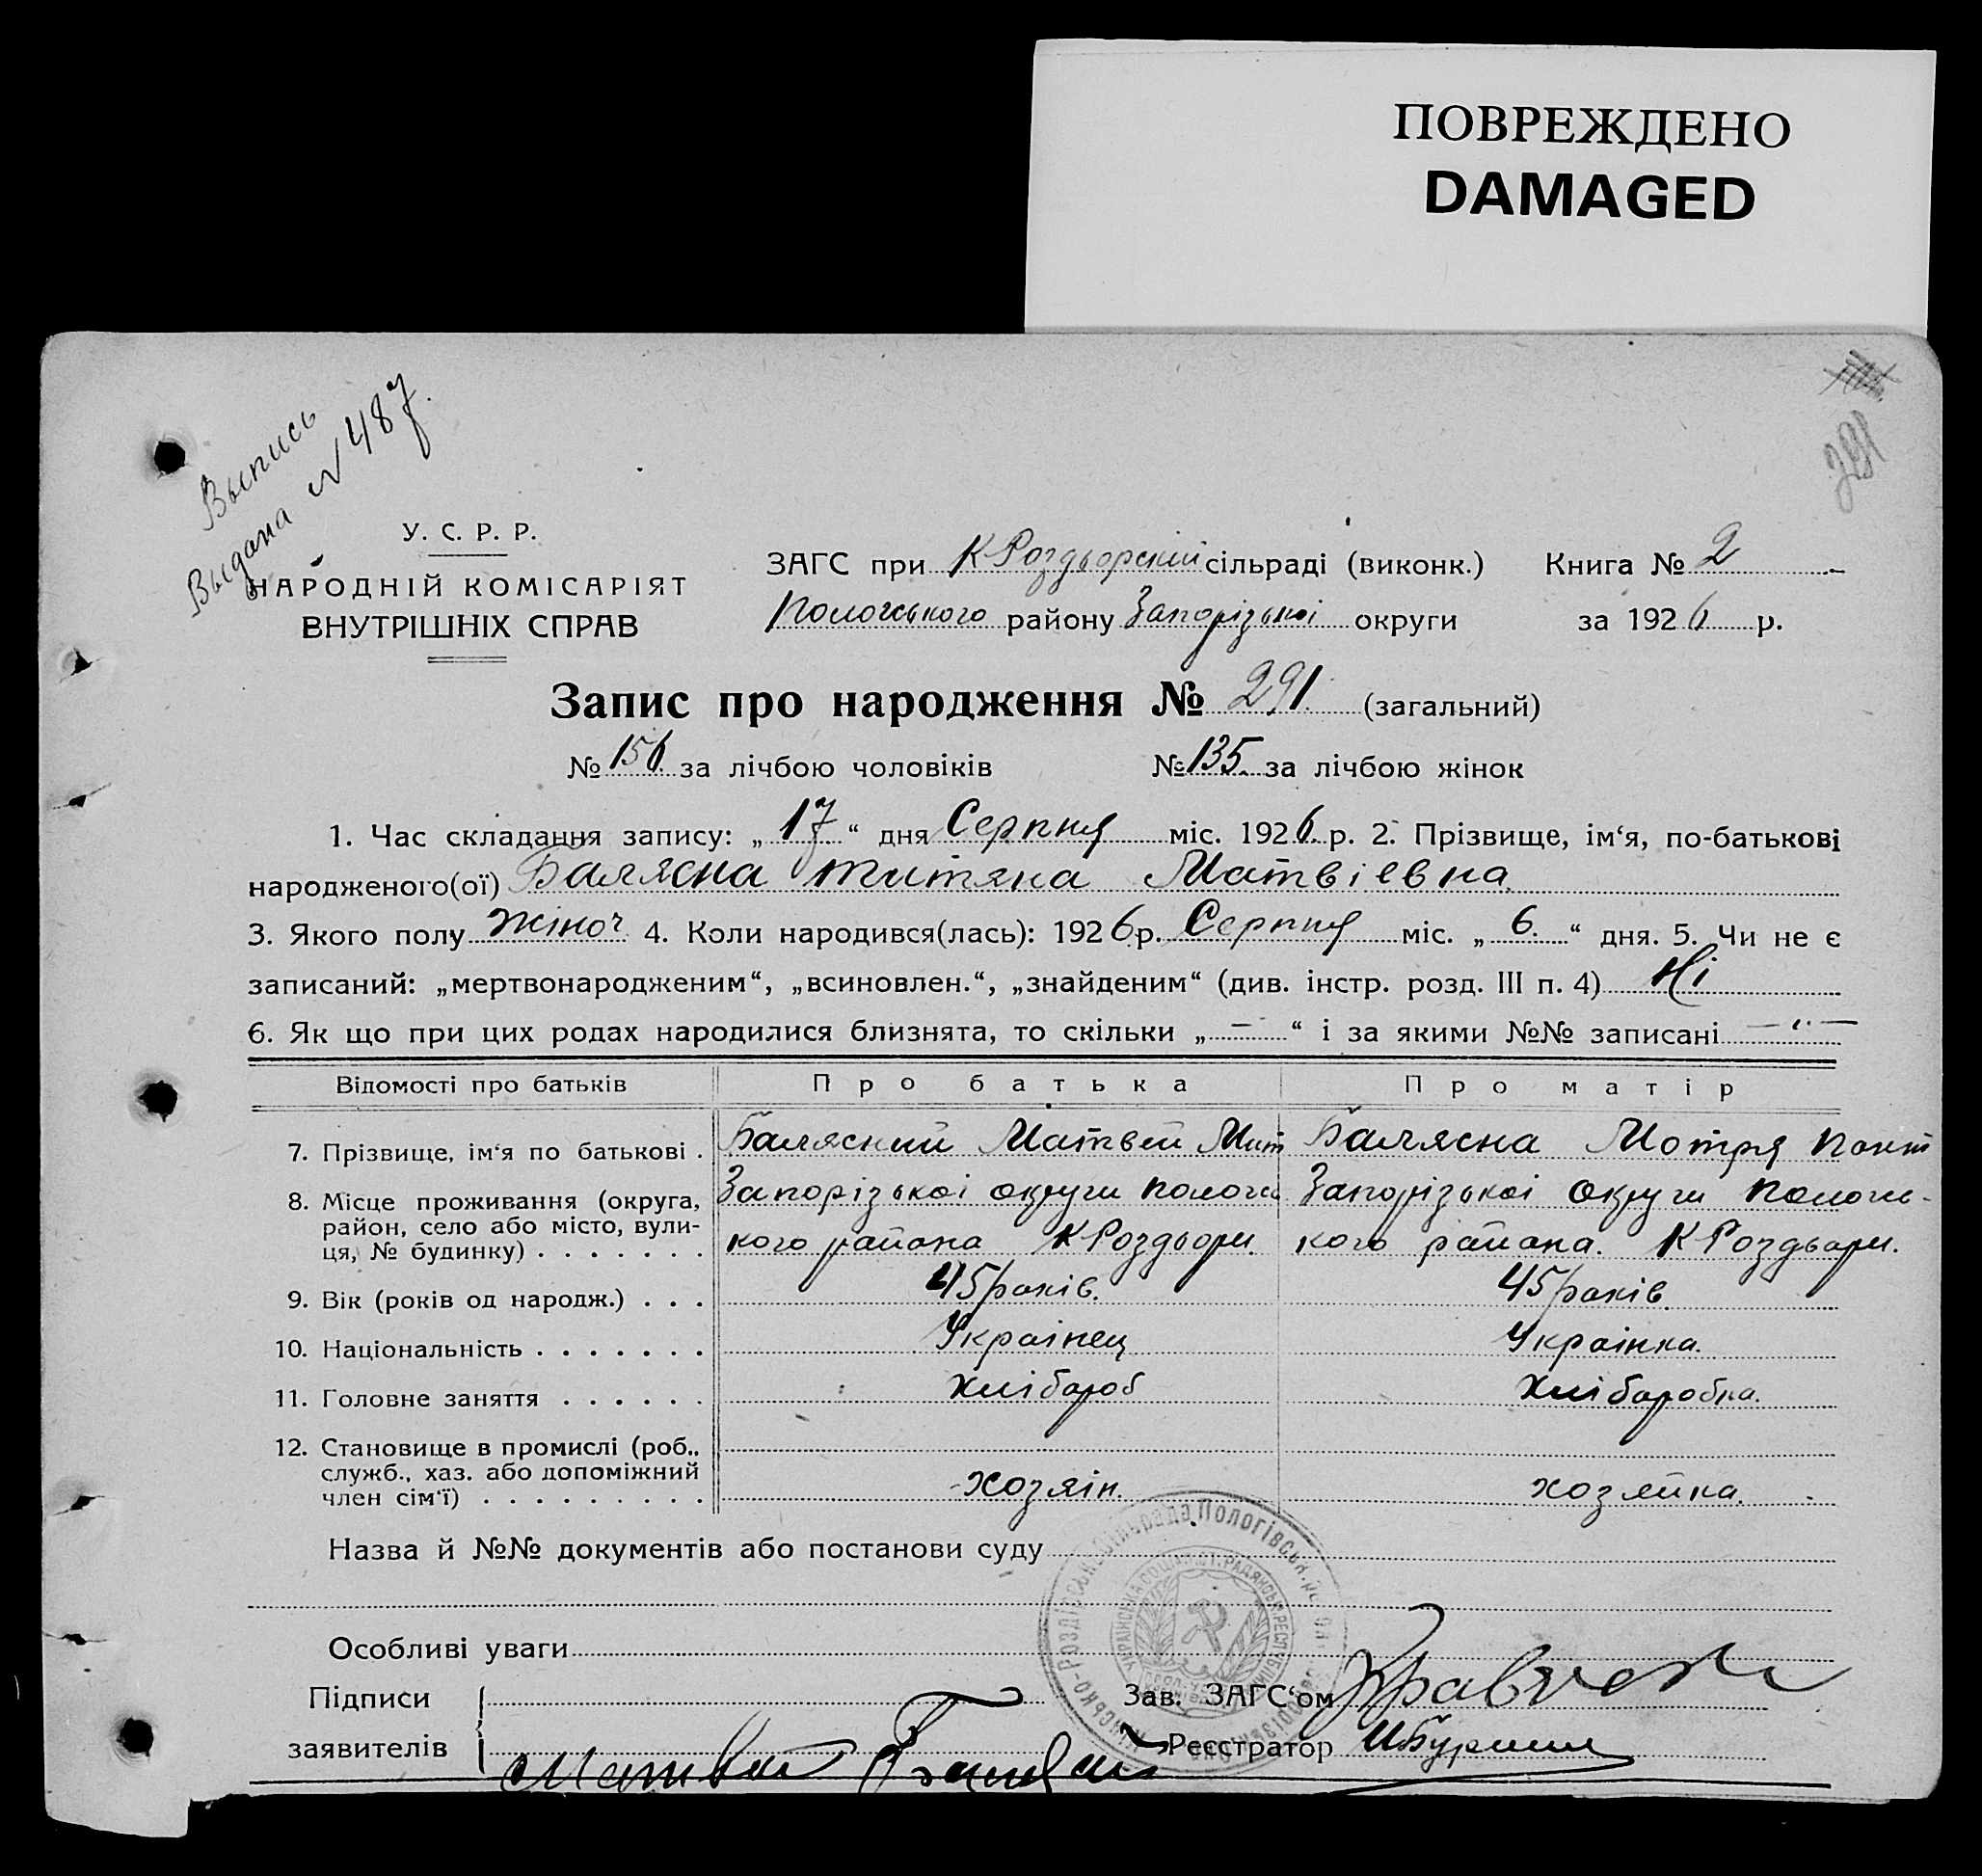 ПОВРЕЖДЕНО
DAMAGED
291
Выпись
Выдана № 487.
У. С. Р. Р.
НАРОДНІЙ КОМІСАРІЯТ
ВНУТРІШНІХ СПРАВ
ЗАГС при К Роздьорскій сільраді (виконк.) Книга № 2
Пологського району Запорізькоі округи за 1926 р.
Запис про народження № 291. (загальний)
№ 156 за лічбою чоловіків № 135. за лічбою жінок
1. Час складання запису: „17“ дня Серпня міс. 1926 р. 2. Прізвище, ім‘я, по-батькові
народженого(ої) Балясна Титяна Матвіевна
3. Якого полу жіноч 4. Коли народився(лась): 1926 р. Серпня міс. „6.“ дня. 5. Чи не є
записаний: „мертвонародженим“, „всиновлен.“, „знайденим“ (див. інстр. розд. III п. 4) Ні
6. Як що при цих родах народилися близнята, то скільки „—“ і за якими №№ записані — “ —
Відомості про батьків Про батька Про матір
7. Прізвище, ім‘я по батькові . Балясний Матвей Мит Балясна Мотря Понт
8. Місце проживання (округа, Запорізькоі округи Пологс Запорізькоі Округи Пологс-
район, село або місто, вули-
ця, № будинку) . . . . . . . кого района К Роздьори. кого района. К Роздьори.
9. Вік (років од народж.) . . . 45 років. 45 років.
10. Національність . . . . . . . Украінец Украінка.
11. Головне заняття . . . . . . Хлібороб Хлібаробка.
12. Становище в промислі (роб.,
служб., хаз. або допоміжний
член сім‘ї) . . . . . . . . . хозяін. хозяйка.
Назва й №№ документів або постанови суду
Особливі уваги
Підписи Зав. ЗАГС‘ом
заявителів Матвей Реєстратор